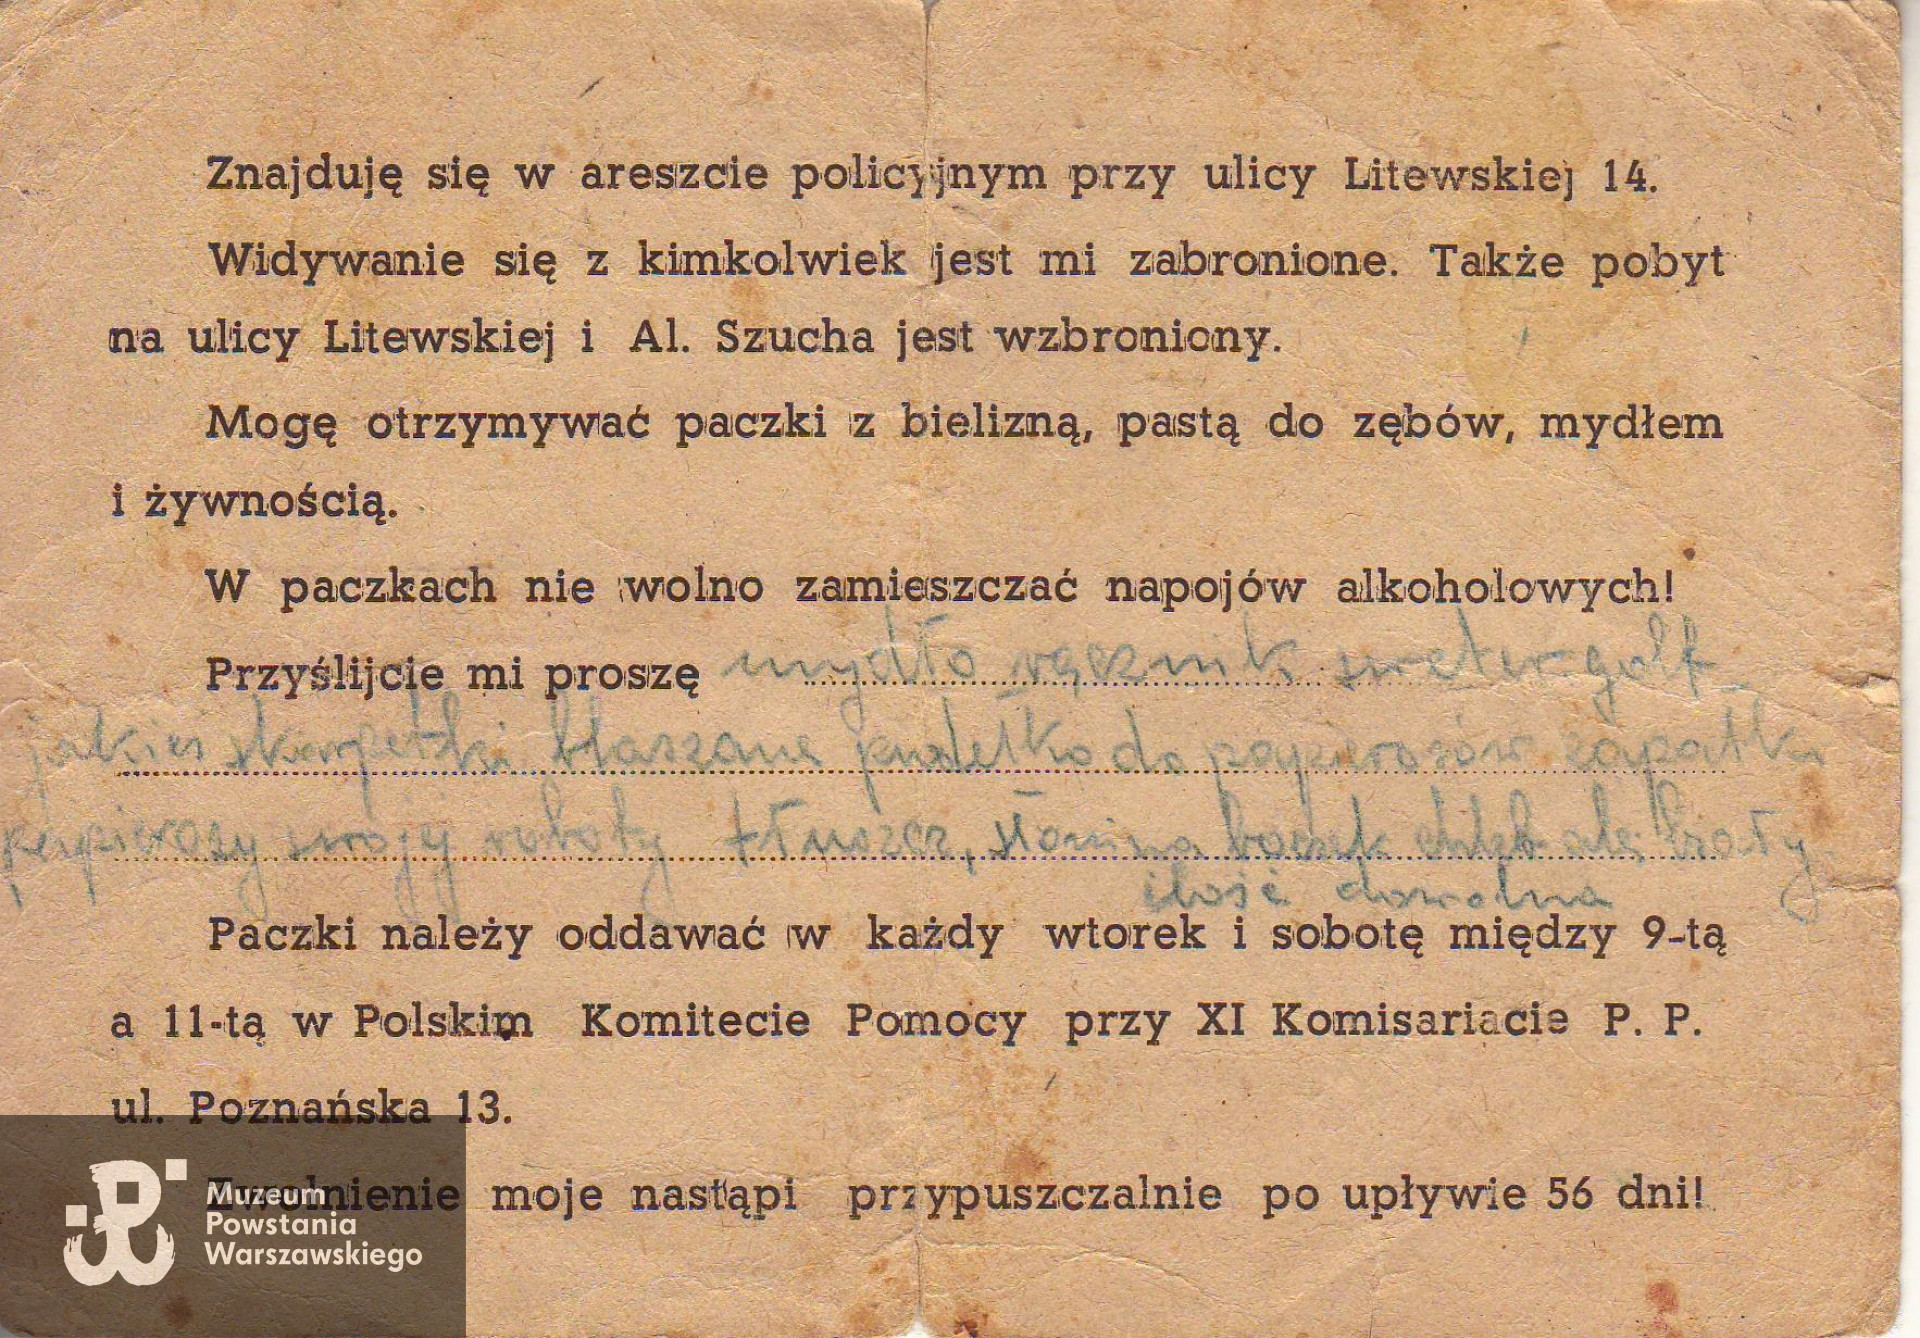 Znajduję się w areszcie policyjnym przy ulicy Litewskiej 14.
Widywanie się z kimkolwiek jest mi zabronione. Także pobyt
na ulicy Litewskiej i Al. Szucha jest wzbroniony.
Mogę otrzymywać paczki z bielizną, pastą do zębów, mydłem
i żywnością.
W paczkach nie wolno zamieszczać napojów alkoholowych!
Przyślijcie mi proszę mydło ręcznik sweter golf
jakieś skarpetki blaszane pudełko do papierosów zapałki
papierosy swojej roboty tłuszcz, słonina boczek chleb ale biały
ilość dowolna
Paczki należy oddawać w każdy wtorek i sobotę między 9-tą
a 11-tą w Polskim Komitecie Pomocy przy XI Komisariacie P. P.
ul. Poznańska 13.
Zwolnienie moje nastąpi przypuszczalnie po upływie 56 dni!
Muzeum
Powstania
Warszawskiego